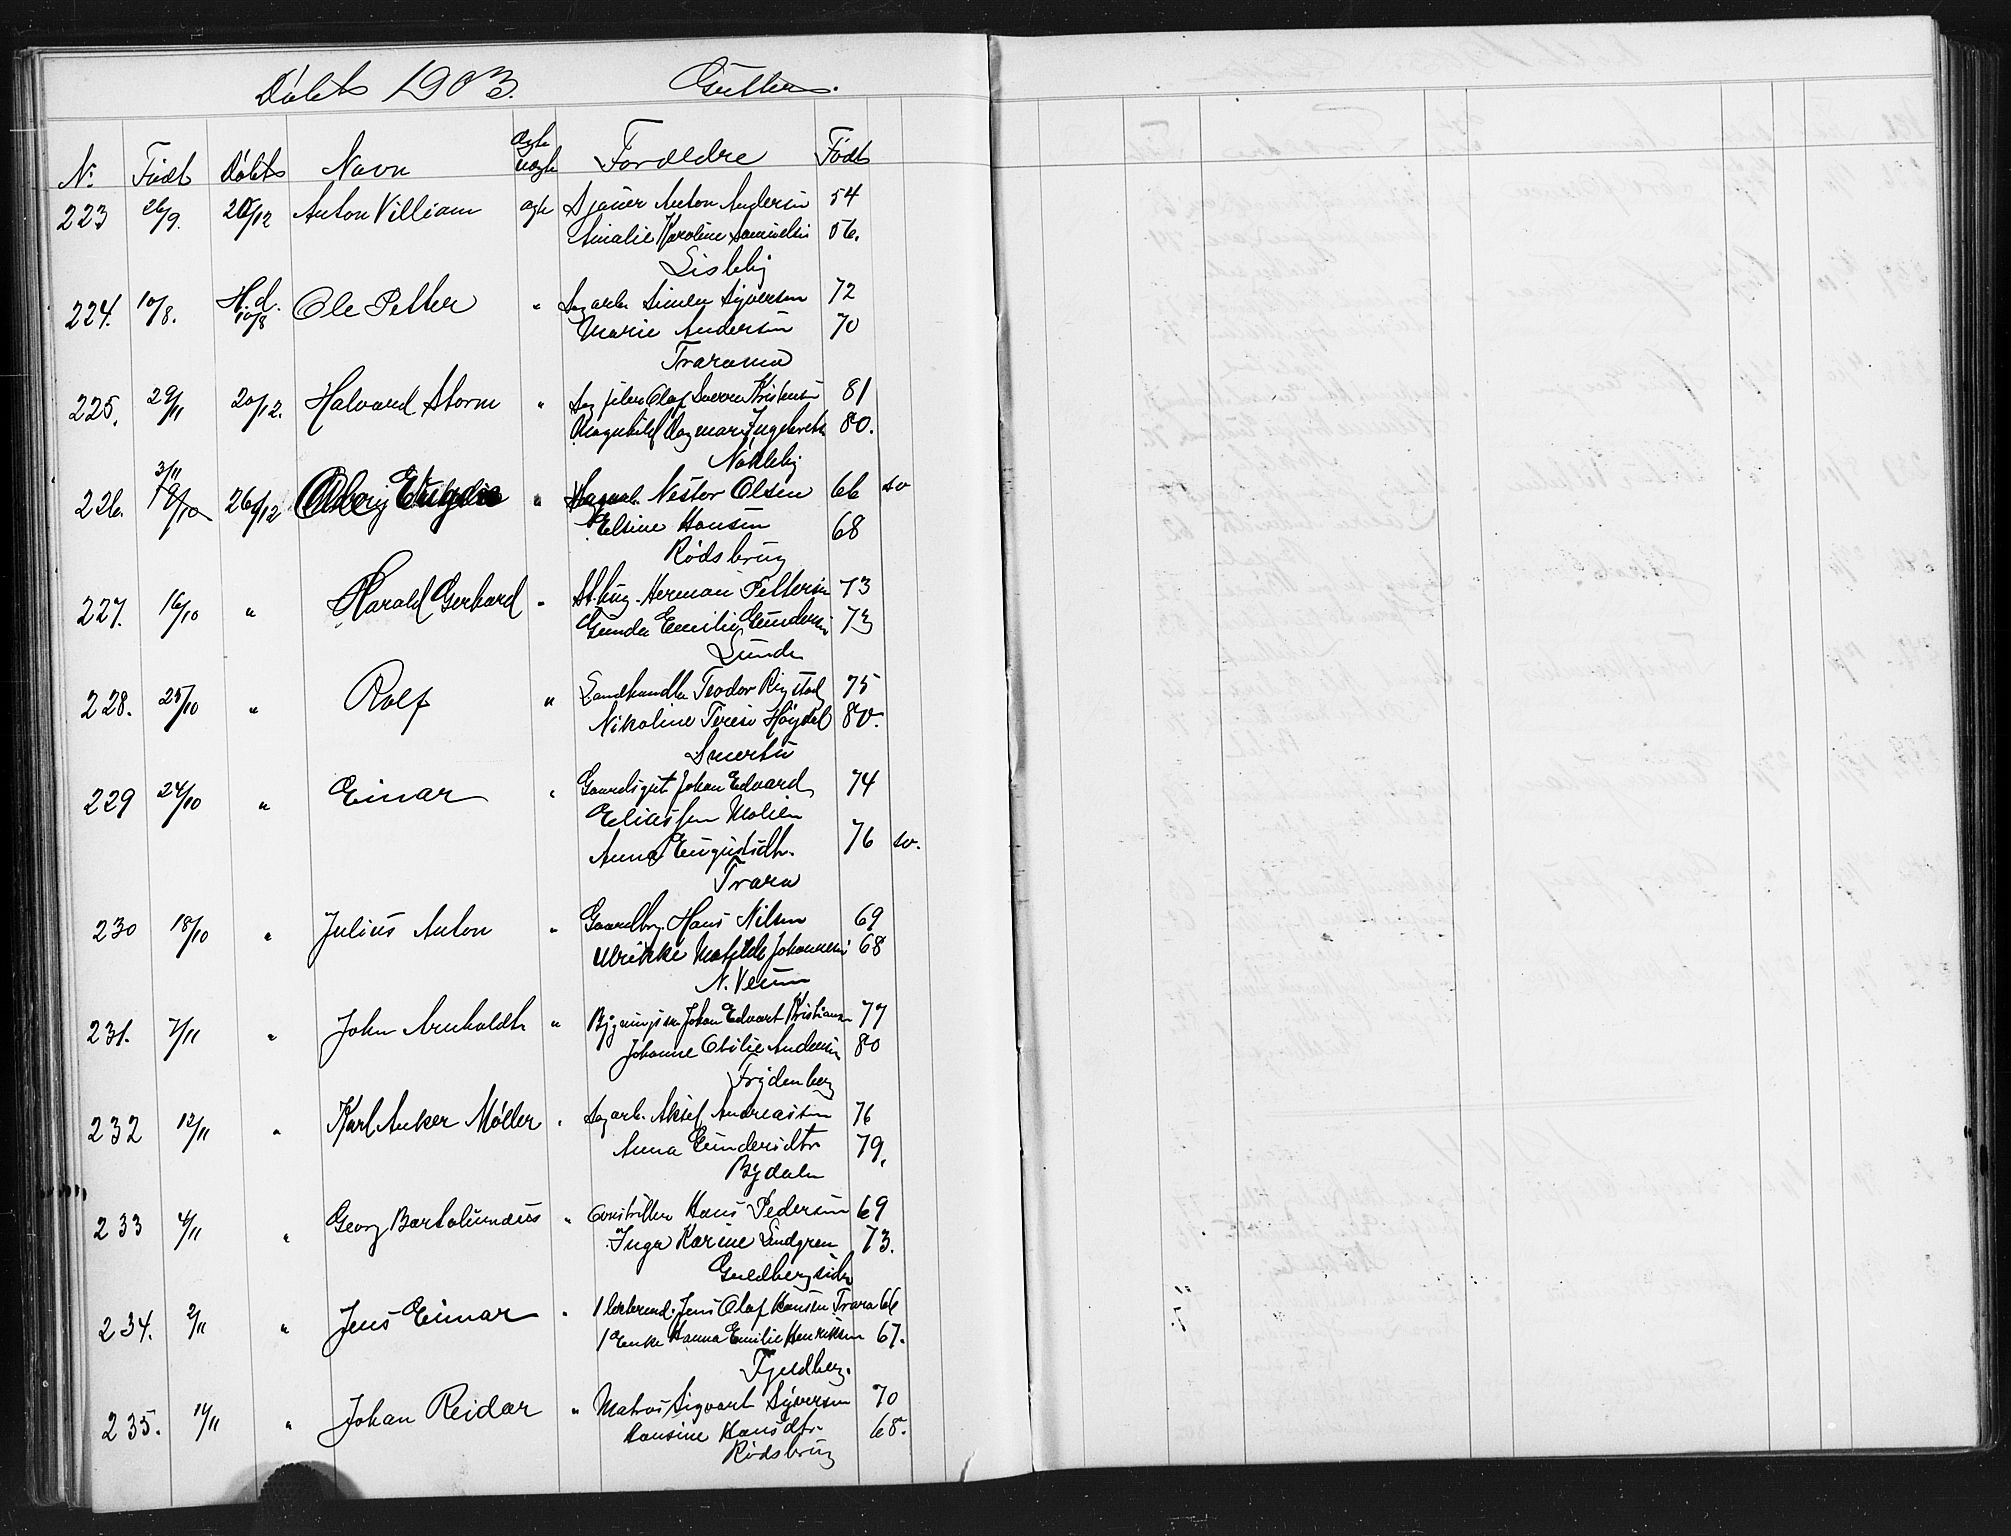 Døbt 1903. Gutter.
N: Født Døbt Navn ægte uægte Forældre Født
223 26/9. 20/12 Anton Villiam ægte Sjauer Anton Andersen 54
Amalie Karoline Samuelsen 56.
Lisleby
224. 10/8. H.d. 10/8 Ole Petter " Sagarb. Simen Syversen 72
Marie Andersen 70
Traramo
225. 29/11 20/12. Halvard Storm " Sagfiler Olaf Sverre Kristensen 81
Magnhild Dagmar Ingebretsen 80.
Nøkleby
226. 3/11 18/10 26/12 " Nestor Olsen 66 sv
Elsine Hansen 68
Rødsbrug
227. 16/10 " Harald Gerhard " Herman Pettersen 73
Gunda Emilie Gundersen 73
Lunde
228. 25/10 " Rolf " Landhandler Teodor Ringstad 75
Nikoline Terese Høydal 80.
Smertu
229 24/10 " Einar " Gaardsgut Johan Edvard 74
Eliassen Molien
Anna Engustdtr. 76 sv.
Trara
230 18/10 " Julius Anton " Gaardbr. Hans Nilsen 69
Ulrikke Matilde Johannesen 68
N. Veum
231. 7/11 " John Arnholdt " Bygningssn. Johan Edvart Kristiansen 77
Johanne Otilie Andersen 80
Frydenberg
232 12/11 " Karl Anker Møller " Sagarb. Aksel Andreassen 76
Anna Gundersdtr 79.
Bydalen
233 4/11 " Georg Bartolumæus " Hans Pedersen 69
Inga Karine Lindgren 73.
Guldbergsiden
234. 2/11 " Jens Einar " Jens Olaf Hansen Trara 66
Enke Hanna Emilie Henriksen 67.
Fjeldberg.
235. 14/11 " Johan Reidar " Matros Sigvart Syversen 70
Hansine Hansdtr. 68.
Rødsbrug